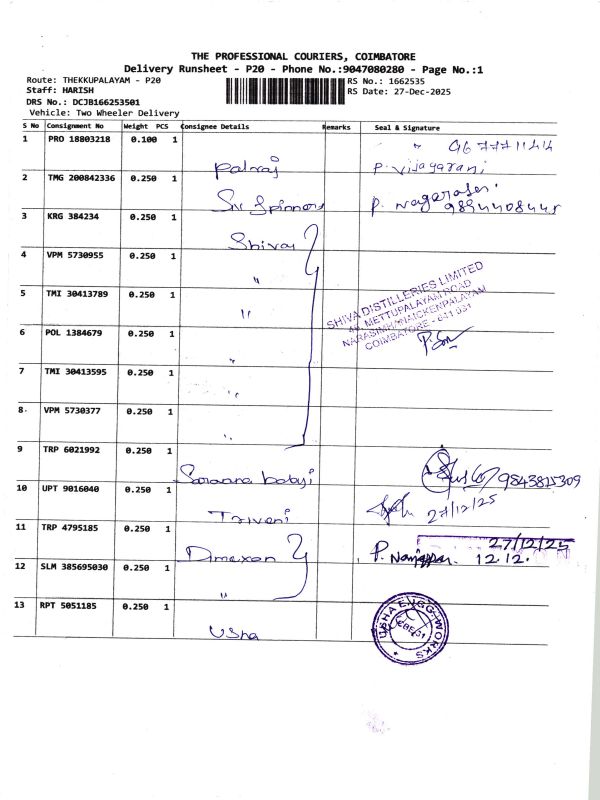 THE PROFESSIONAL COURIERS, COIMBATORE
Delivery Runsheet - P20 - Phone No.:9047080280 - Page No.:1
Route: THEKKUPALAYAM - P20
RS No.: 1662535
Staff: HARISH
RS Date: 27-Dec-2025
DRS No.: DCJB166253501
Vehicle: Two Wheeler Delivery
S No Consignment No Weight PCS Consignee Details Remarks Seal & Signature
1 PRO 18803218 0.100 1 Palraj P. Vijayarani
2 TMG 200842336 0.250 1 Sri Spinners P. Nagarasei 9894408445
3 KRG 384234 0.250 1 Shiva
4 VPM 5730955 0.250 1 "
5 TMI 30413789 0.250 1 "
SHIVA DISTILLERIES LIMITED
METTUPALAYAM ROAD
NARASIMHANAICKENPALAYAM
COIMBATORE - 641 031
6 POL 1384679 0.250 1 "
7 TMI 30413595 0.250 1 "
8 VPM 5730377 0.250 1 "
9 TRP 6021992 0.250 1 Saravana babyi 9843815309
10 UPT 9016040 0.250 1 Triveni 27/12/25
11 TRP 4795185 0.250 1 Dmaxon P. 27/12/25
12.12.
12 SLM 385695030 0.250 1 "
13 RPT 5051185 0.250 1 Usha
USHA ENGG WORKS
CBE-31